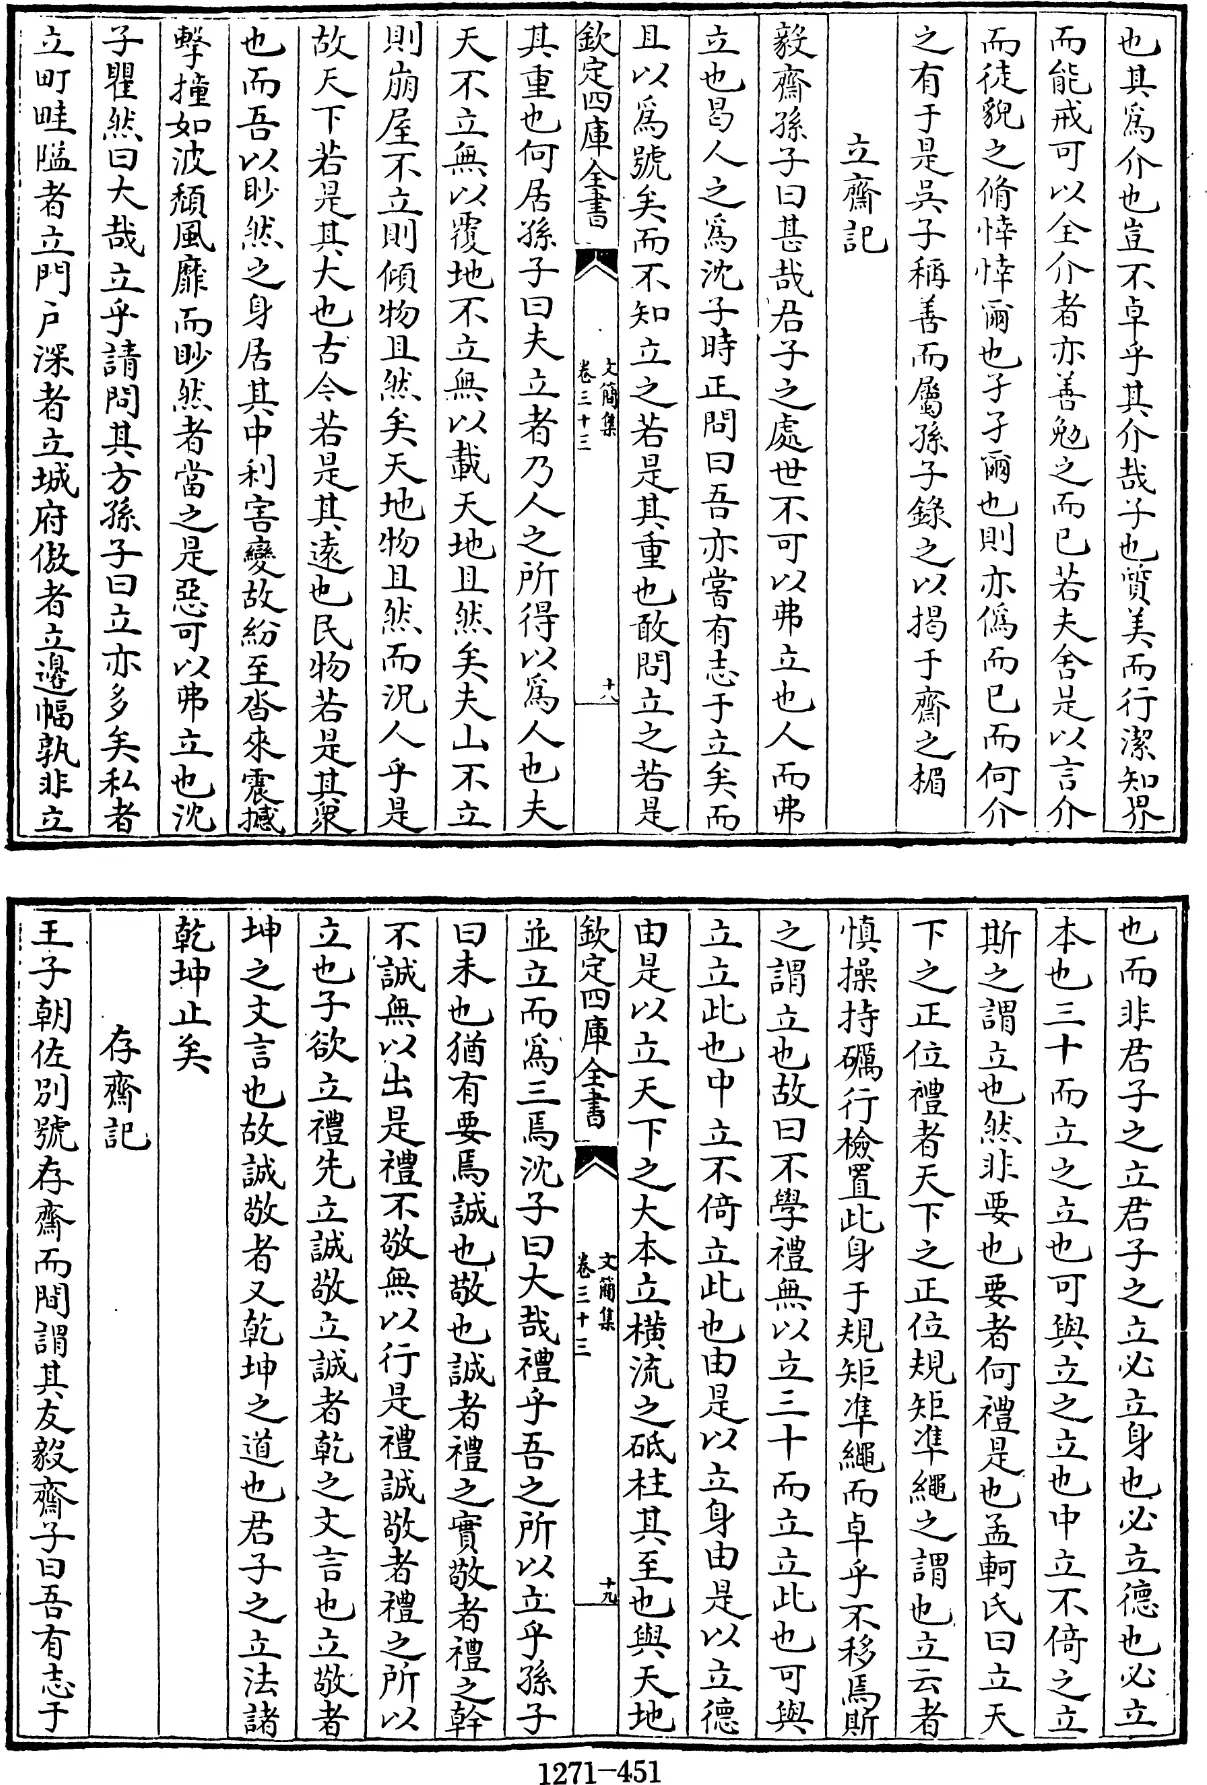 也其爲介也豈不卓乎其介哉子也質美而行潔知界
而能戒可以全介者亦善勉之而已若夫舍是以言介
而徒貌之脩悻悻爾也孑孑爾也則亦僞而已而何介
之有于是吳子稱善而屬孫子錄之以揭于齋之楣
立齋記
毅齋孫子曰甚哉君子之處世不可以弗立也人而弗
立也曷人之爲沈子時正問曰吾亦嘗有志于立矣而
且以爲號矣而不知立之若是其重也敢問立之若是
欽定四庫全書
文簡集
卷三十三
十八
其重也何居孫子曰夫立者乃人之所得以爲人也夫
天不立無以覆地不立無以載天地且然矣夫山不立
則崩屋不立則傾物且然矣天地物且然而況人乎是
故天下若是其大也古今若是其遠也民物若是其衆
也而吾以眇然之身居其中利害變故紛至沓來震撼
擊撞如波頹風靡而眇然者當之是惡可以弗立也沈
子瞿然曰大哉立乎請問其方孫子曰立亦多矣私者
立町畦隘者立門戶深者立城府傲者立邊幅孰非立
也而非君子之立君子之立必立身也必立德也必立
本也三十而立之立也可與立之立也中立不倚之立
斯之謂立也然非要也要者何禮是也孟軻氏曰立天
下之正位禮者天下之正位規矩準繩之謂也立云者
慎操持礪行檢置此身于規矩準繩而卓乎不移焉斯
之謂立也故曰不學禮無以立三十而立立此也可與
立立此也中立不倚立此也由是以立身由是以立德
由是以立天下之大本立橫流之砥柱其至也與天地
欽定四庫全書
文簡集
卷三十三
十九
並立而爲三焉沈子曰大哉禮乎吾之所以立乎孫子
曰未也猶有要焉誠也敬也誠者禮之實敬者禮之幹
不誠無以出是禮不敬無以行是禮誠敬者禮之所以
立也子欲立禮先立誠敬立誠者乾之文言也立敬者
坤之文言也故誠敬者又乾坤之道也君子之立法諸
乾坤止矣
存齋記
王子朝佐別號存齋而間謂其友毅齋子曰吾有志于
1271-451